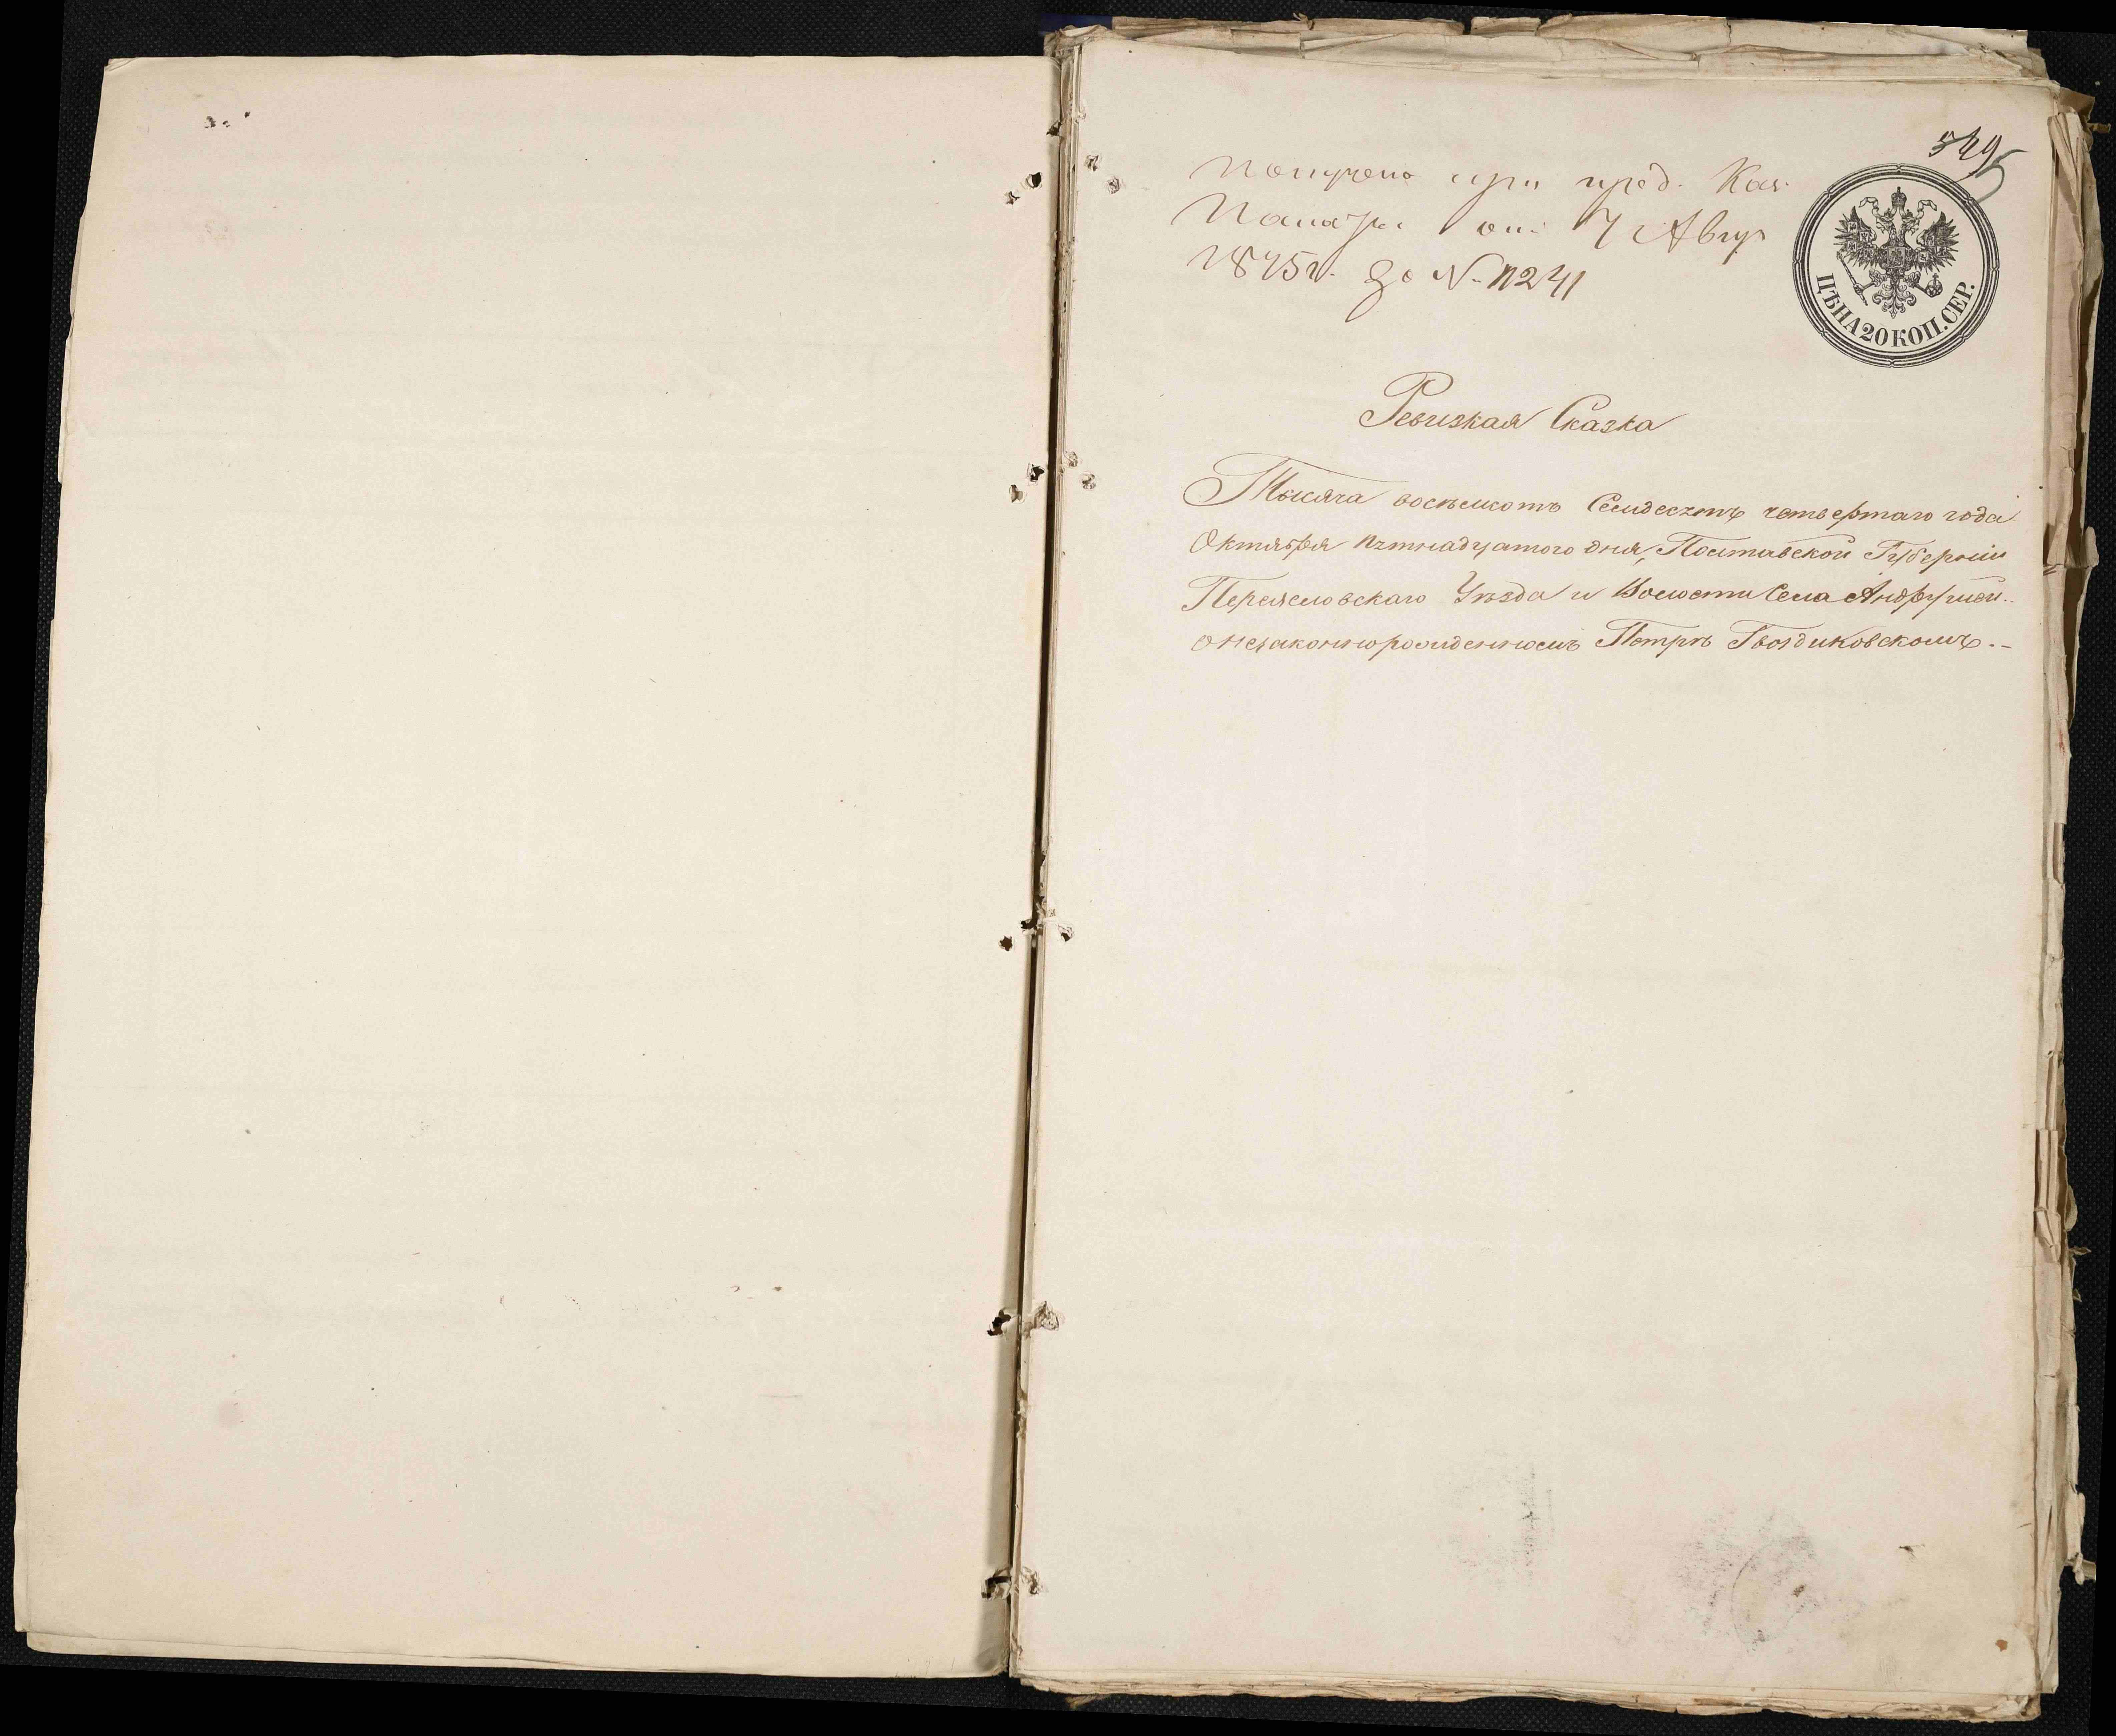 549
Получена при пред. Каз.
Палаты от 7 Авгу
1875 г. за N. 11241
ЦѢНА 20 КОП. СЕР.
Ревизкая Сказка
Тысяча восѣмсотъ Семдесятъ четвертаго года
Октября пятнадцатого дня, Полтавской Губерніи
Переяславскаго Уѣзда и Волости Села Андрушей
о незаконнорожденномъ Петрѣ Гвоздиковскомъ.-